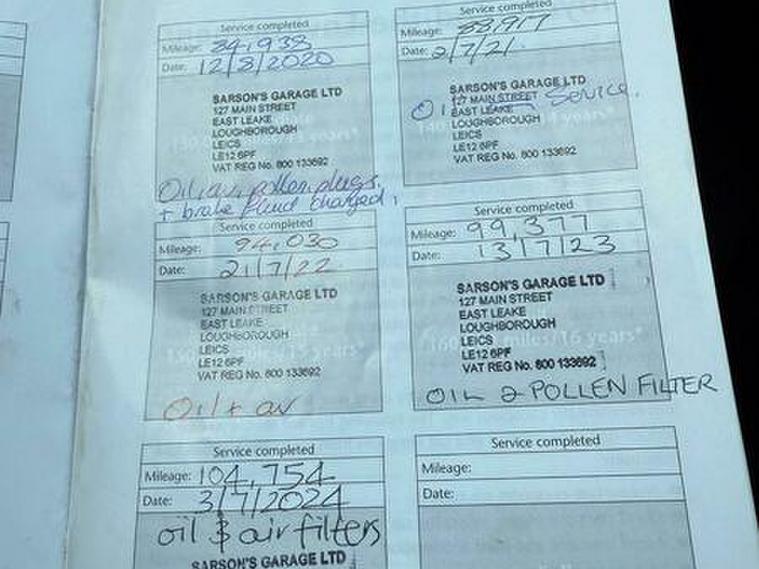 Service completed
Mileage: 84,938
Date: 12/8/2020
SARSON'S GARAGE LTD
127 MAIN STREET
EAST LEAKE
LOUGHBOROUGH
LEICS
LE12 6PF
VAT REG No. 800 133692
Oil, air, pollen, plugs,
+ brake fluid changed,
Service completed
Mileage: 88,917
Date: 2/7/21
SARSON'S GARAGE LTD
127 MAIN STREET
Oil Service.
EAST LEAKE
LOUGHBOROUGH
LEICS
LE12 6PF
VAT REG No. 800 133692
Service completed
Mileage: 94,030
Date: 21/7/22
SARSON'S GARAGE LTD
127 MAIN STREET
EAST LEAKE
LOUGHBOROUGH
LEICS
LE12 6PF
VAT REG No. 800 133692
Oil + air
Service completed
Mileage: 99,377
Date: 13/7/23
SARSON'S GARAGE LTD
127 MAIN STREET
EAST LEAKE
LOUGHBOROUGH
LEICS
LE12 6PF
VAT REG No. 800 133692
OIL & POLLEN FILTER
Service completed
Mileage: 104,754
Date: 3/7/2024
oil & air filters
SARSON'S GARAGE LTD
Service completed
Mileage:
Date: